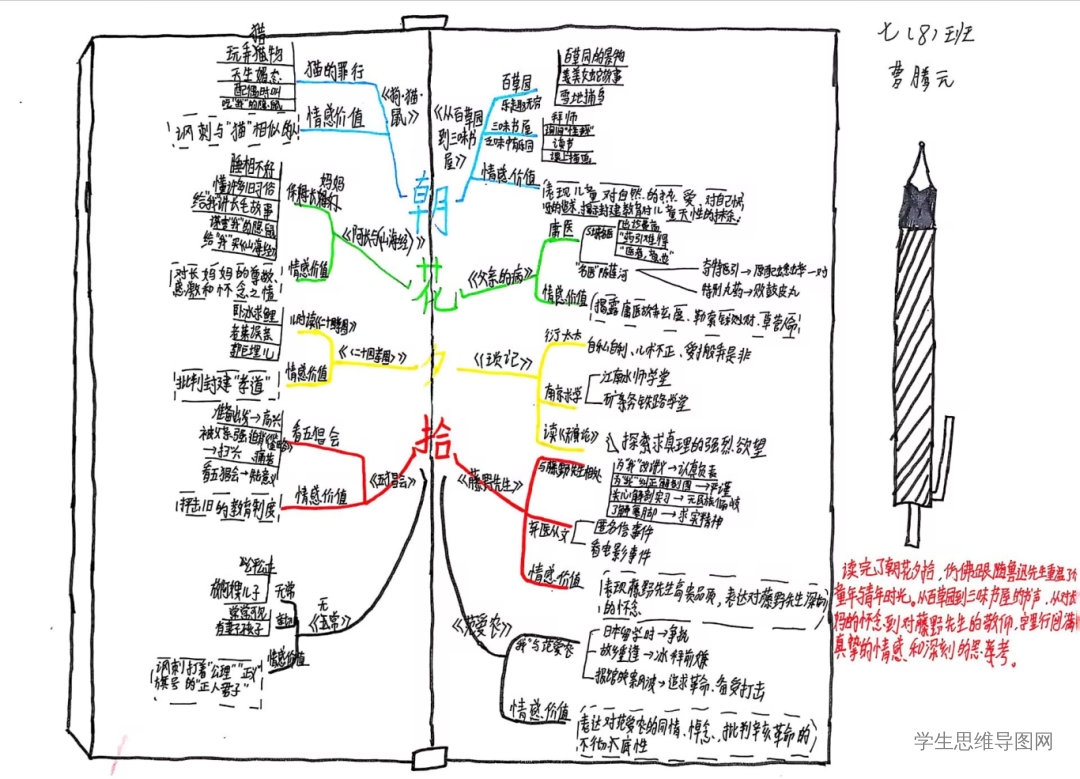 七(8)班
曹腾元
朝
花
夕
拾
《狗·猫·鼠》
猫的罪行
猫
玩弄猎物
天生媚态
配偶时叫
吃"我"的隐鼠
情感价值
讽刺与"猫"相似的人
《阿长与《山海经》》
睡相不好
懂许多旧习俗
给我讲长毛故事
谋害"我"的隐鼠
给"我"买《山海经》
情感价值
对长妈妈的尊敬、
感激和怀念之情
《二十四孝图》
儿时读《二十四孝图》
卧冰求鲤
老莱娱亲
郭巨埋儿
情感价值
批判封建"孝道"
《五猖会》
看五猖会
准备出发→高兴
被父亲强迫背《鉴略》
→扫兴 痛苦
看五猖会→
情感价值
抨击旧的教育制度
《无常》
无常
情感价值
讽刺打着"公理""正义"
旗号的"正人君子"
《从百草园
到三味书
屋》
百草园
乐趣无穷
百草园的景物
美女蛇故事
雪地捕鸟
三味书屋
拜师
读书
课上描画
情感价值
表现儿童对自然的热爱,对自己
《父亲的病》
庸医
"药引难得
"名医"陈莲河
奇特药引→原配蟋蟀一对
特别丸药→败鼓皮丸
情感价值
《琐记》
衍太太
自私自利、心术不正、爱搬弄是非
南京求学
江南水师学堂
矿务铁路学堂
读《天演论》
探索求真理的强烈欲望
《藤野先生》
与藤野先生相处
为"我"改讲义→认真负责
为"我"纠正解剖图→严谨
关心解剖实习→无民族偏岐
了解裹脚→求实精神
弃医从文
匿名信事件
看电影事件
情感价值
表现藤野先生高贵品质,表达对藤野先生深刻
的怀念
《范爱农》
"我"与范爱农
日本留学时→争执
故乡重逢→冰释前嫌
报馆案风波→追求革命、备受打击
情感价值
表达对范爱农的同情、悼念、批判辛亥革命的
不彻底性
读完了朝花夕拾,仿佛跟随鲁迅先生重温了
童年与青年时光。从百草园到三味书屋的书声,从对
妈的怀念到对藤野先生的敬仰,字里行间满
真挚的情感和深刻的思考。
学生思维导图网